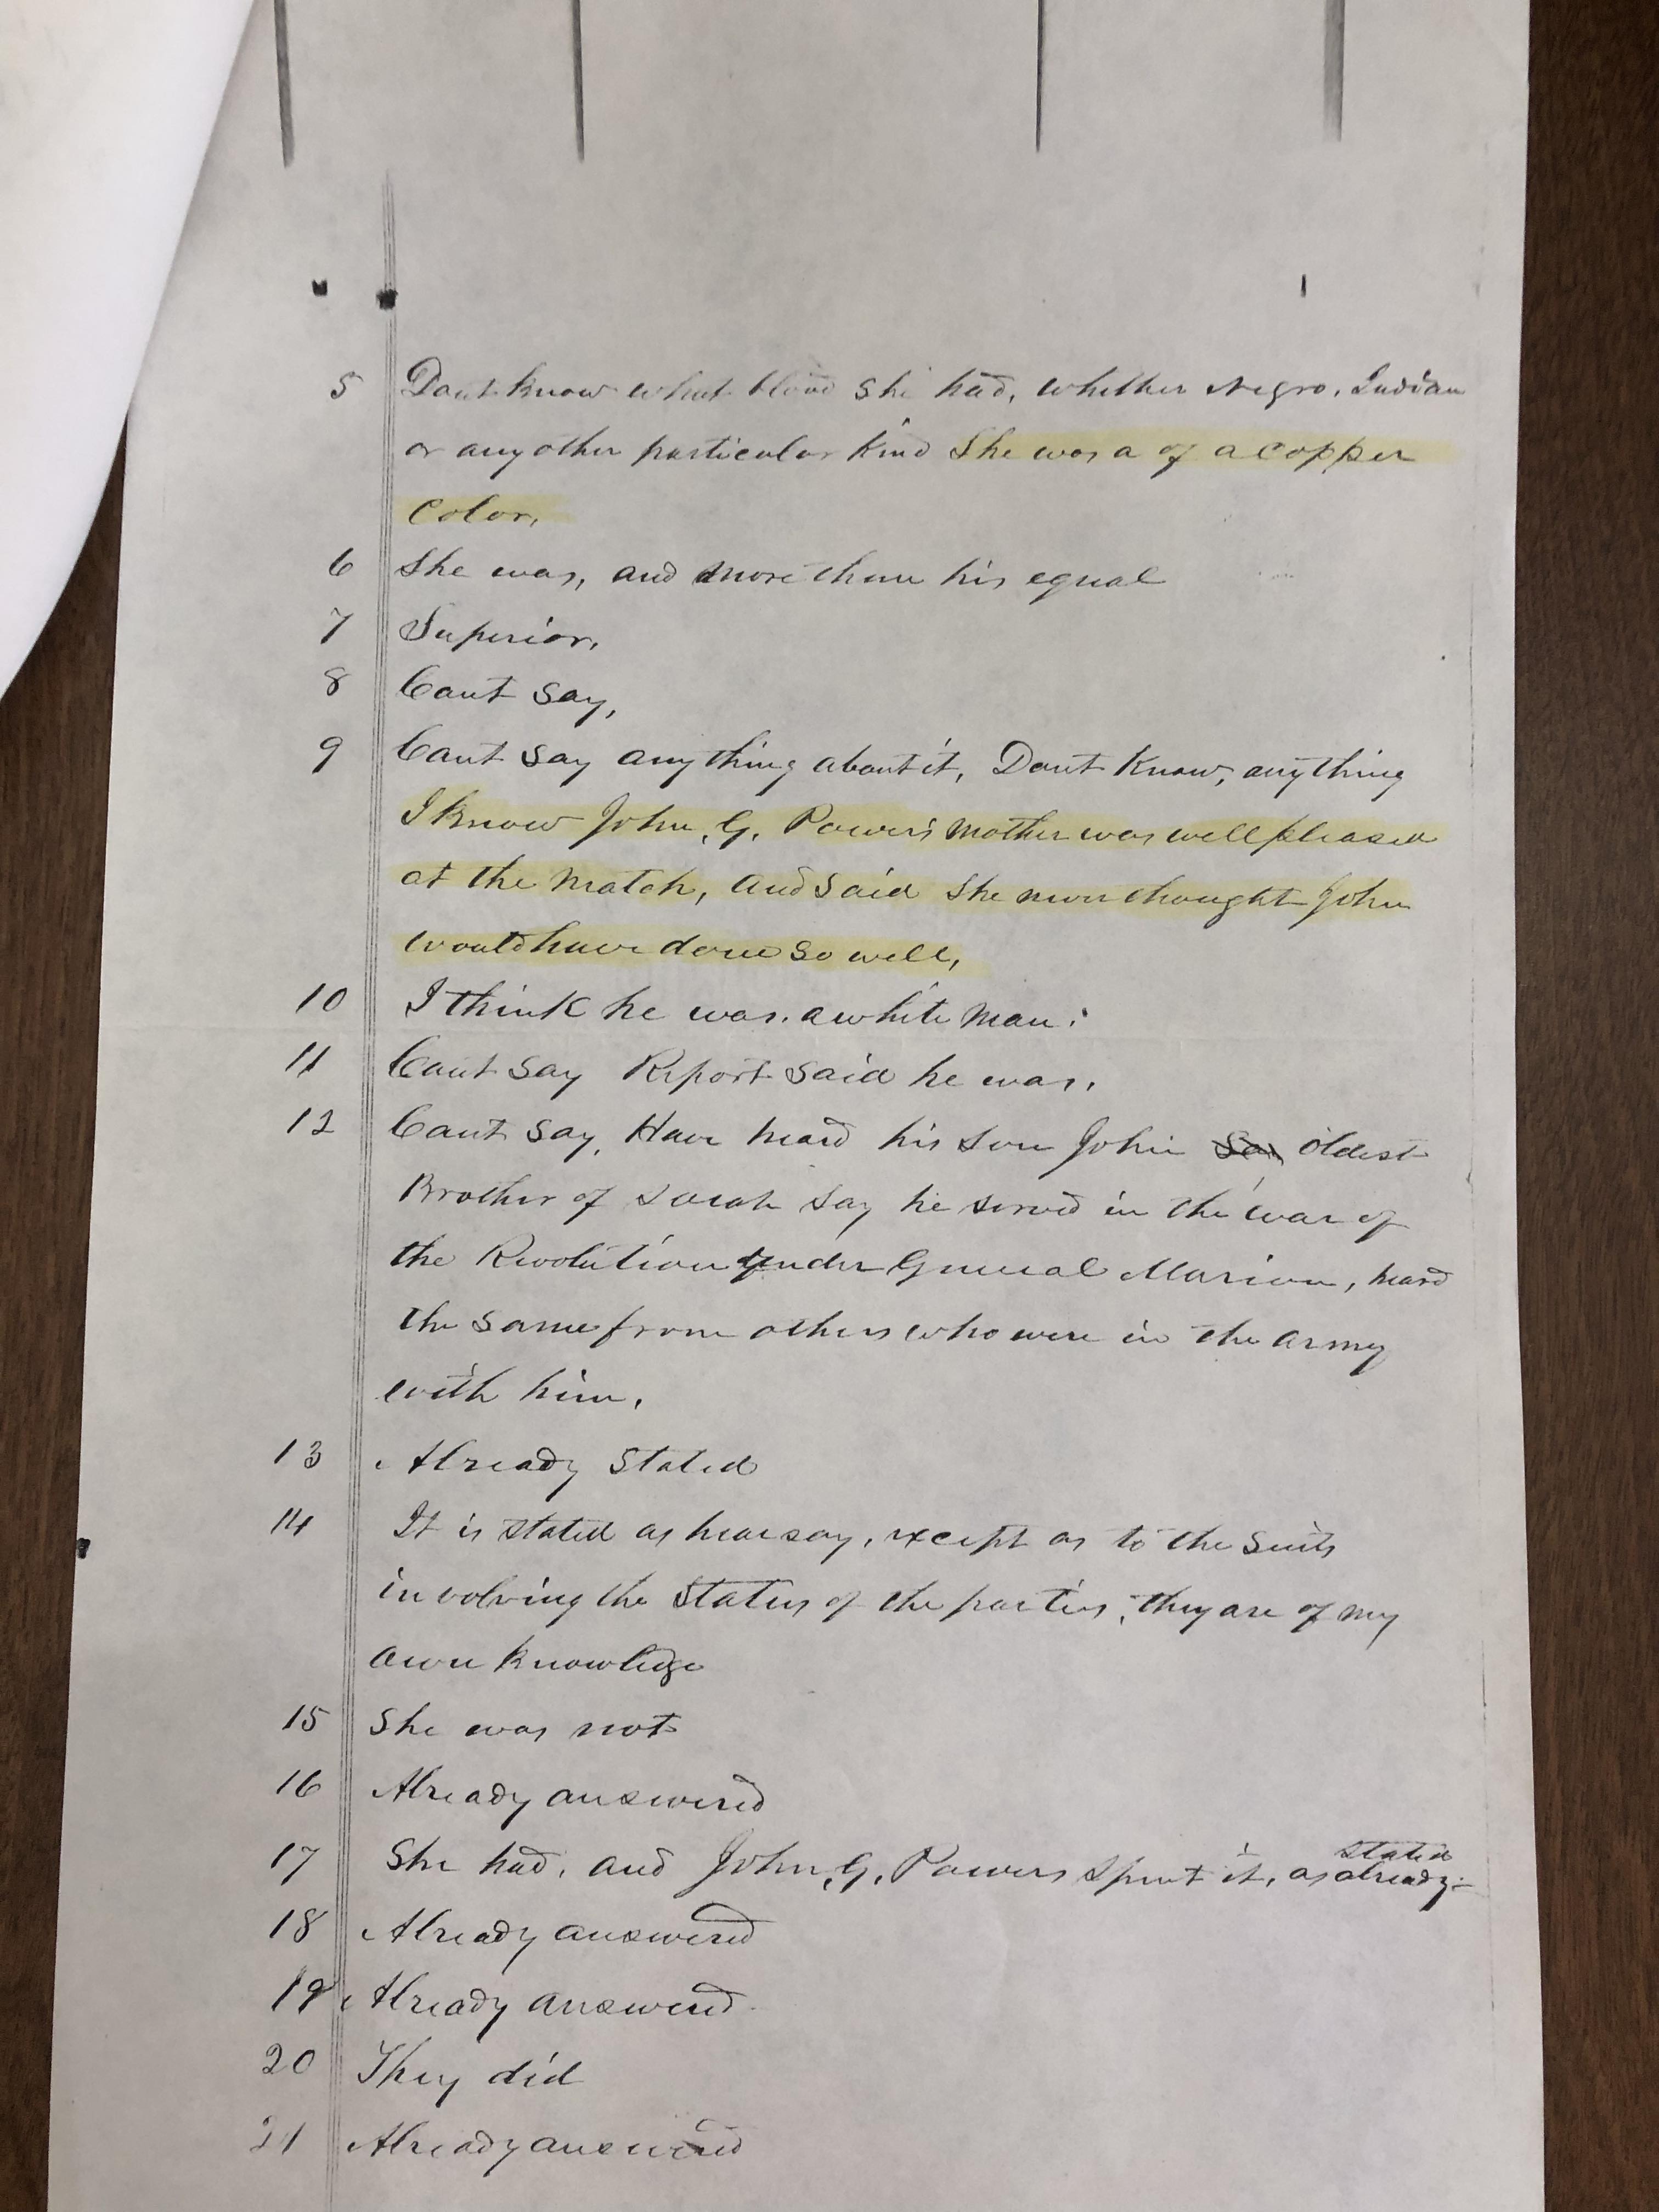 5 Dont know what blood she had, whether Negro, Indian
or any other particular kind She was a of a Copper
Color,
6 She was, and more than his equal
7 Superior,
8 Cant say,
9 Cant say anything about it, Dont Know, anything
I Know John, G, Powers mother was well pleased
at the match, and said she never thought John
would have done so well,
10 I think he was a white man.
11 Cant say Report said he was,
12 Cant say, Have heard his son John oldest
Brother of Sarah say he served in the war of
the Revolution under General Marion, heard
the same from others who were in the army
with him,
13 Already Stated
14 It is stated as hearsay, except as to the Suits
involving the Status of the parties, they are of my
own Knowledge
15 She was not
16 Already answered
17 She had, and John, G, Powers spent it, as already stated
18 Already answered
19 Already answered
20 They did
21 Already answered